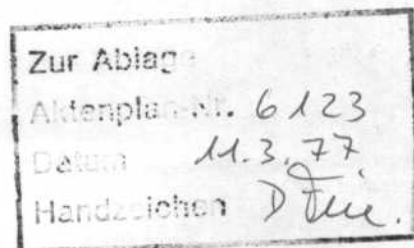 Zur Ablage
Aktenplan-Nr. 6123
Datum 11.3.77
Handzeichen